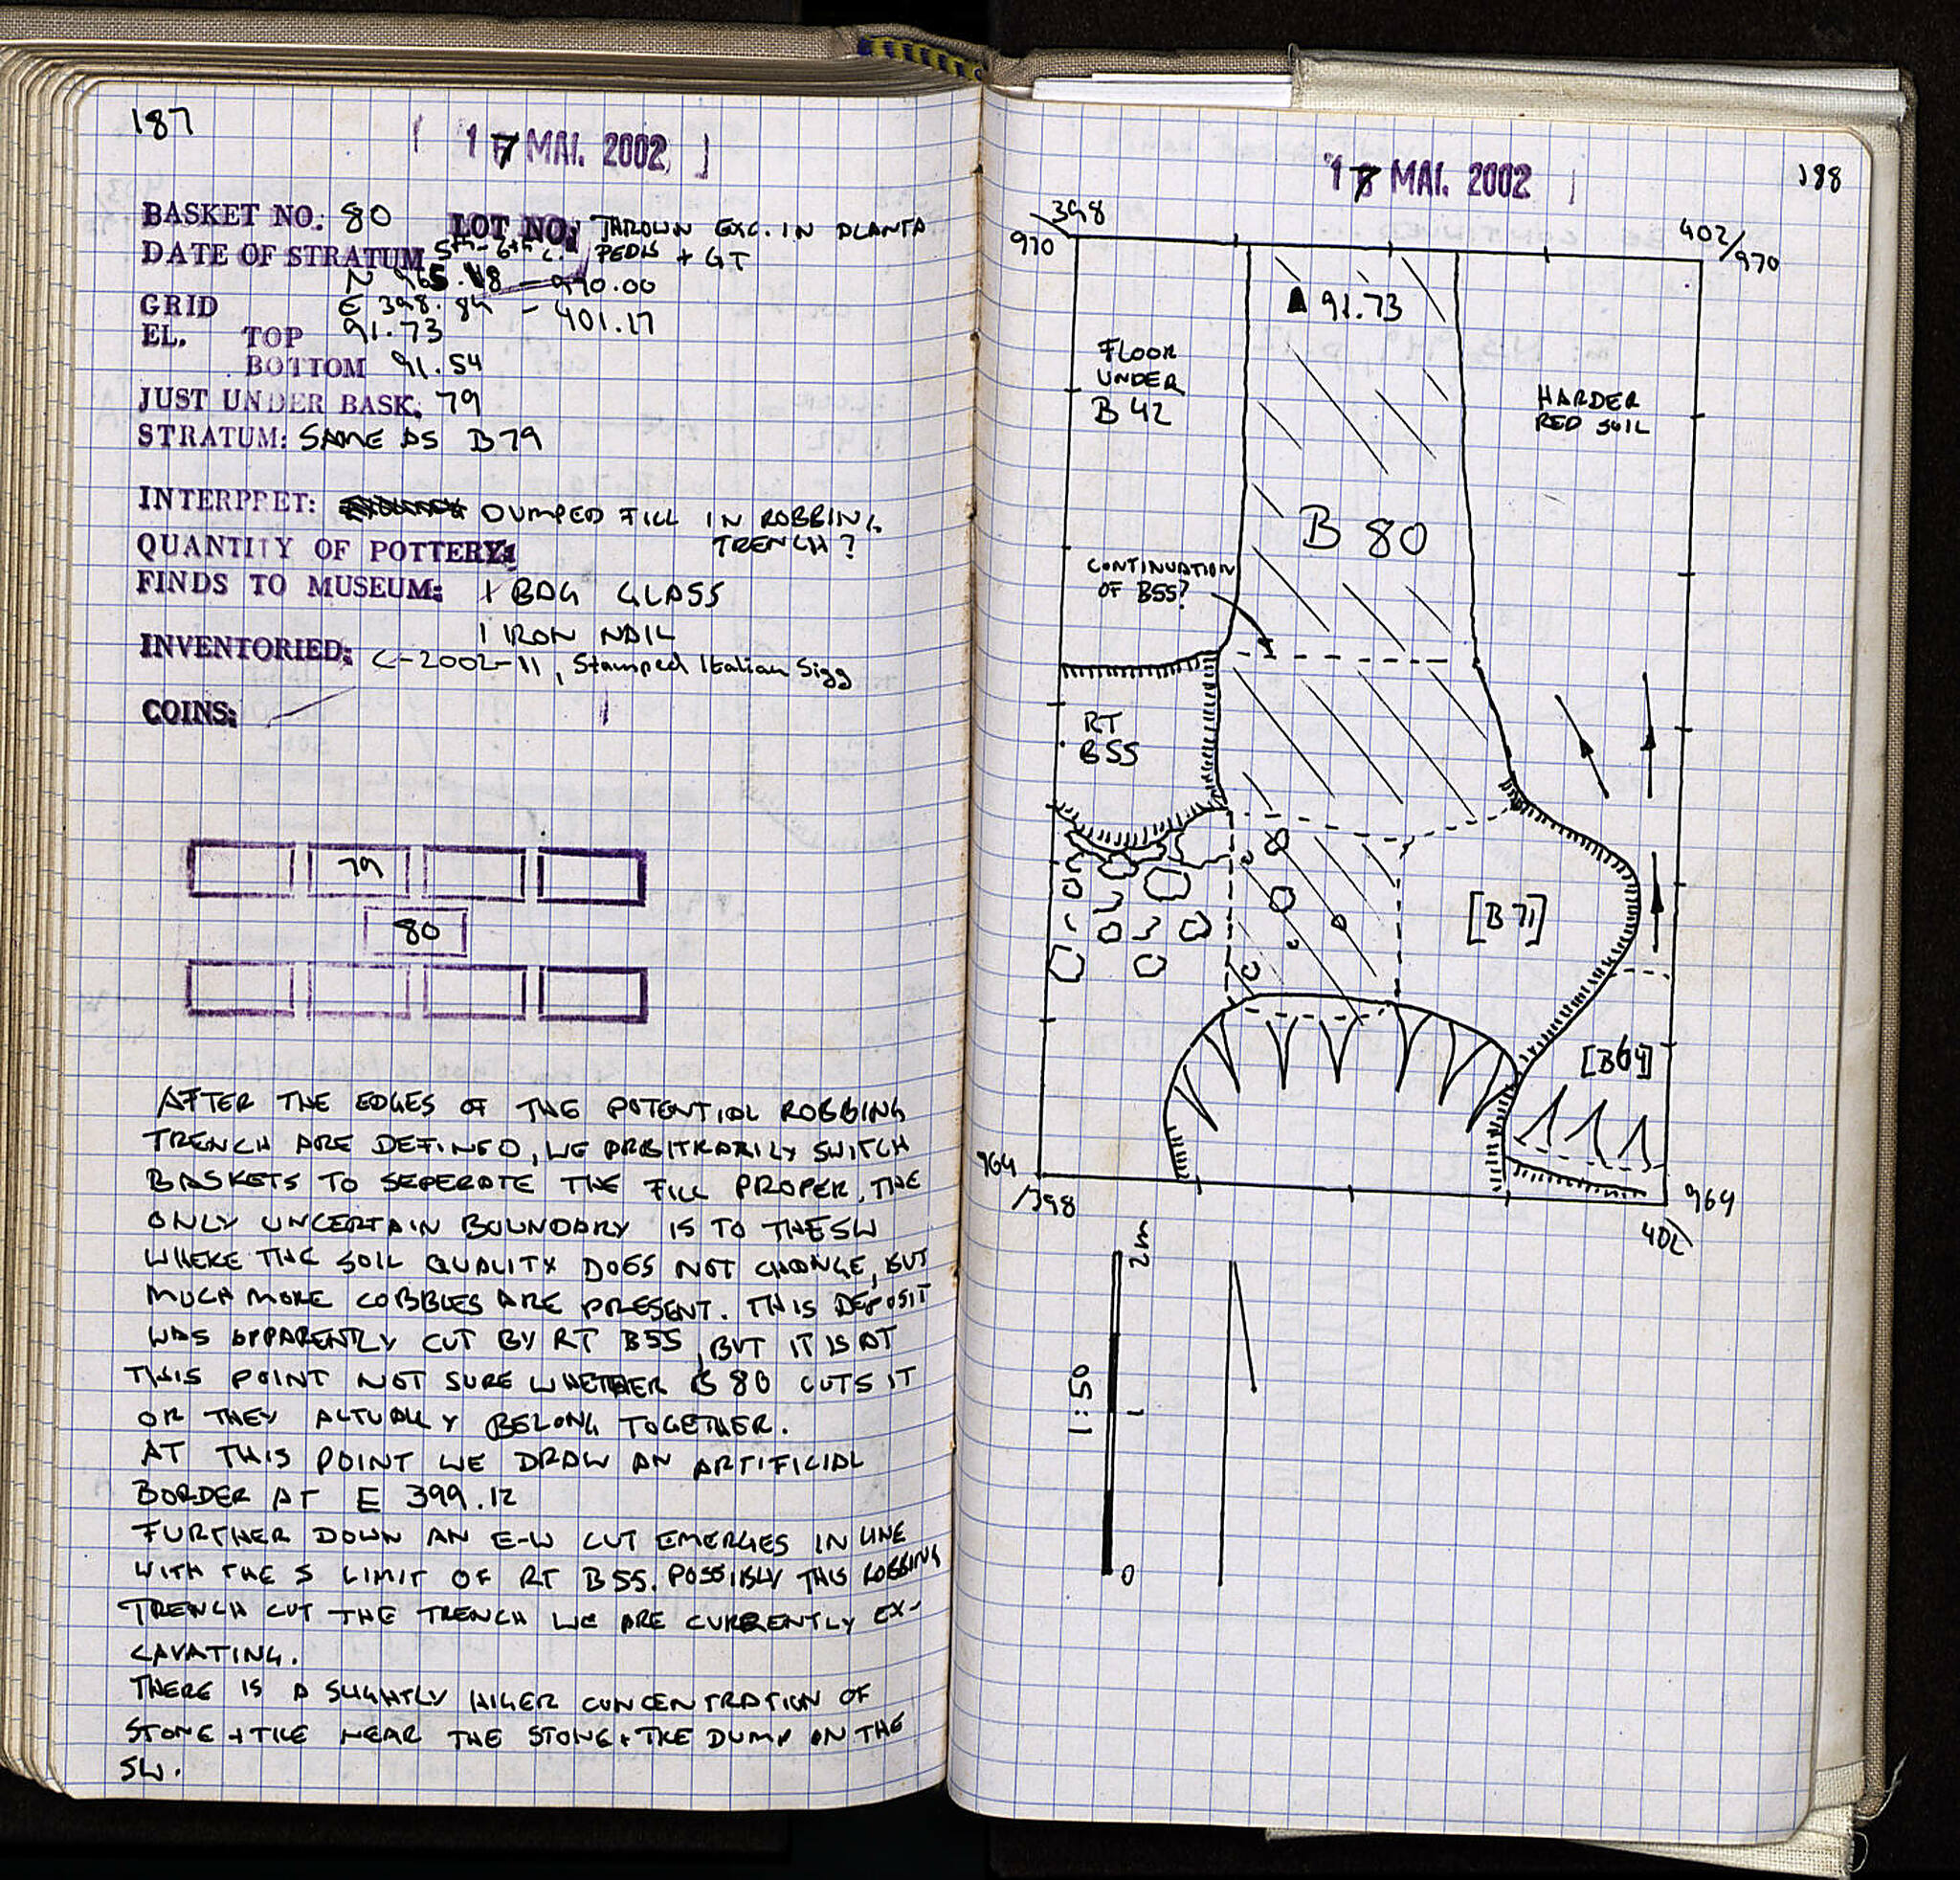 187
17 MAI. 2002
BASKET NO: 80 LOT NO: THROWN EXC. IN PLANTA
DATE OF STRATUM 5th-6th c. PEDIS + GT
N 965.18 - 970.00
GRID E 398.84 - 401.27
EL. TOP 91.73
BOTTOM 91.54
JUST UNDER BASK. 79
STRATUM: SAME AS B79
INTERPRET: DUMPED FILL IN ROBBING
TRENCH?
QUANTITY OF POTTERY:
FINDS TO MUSEUM: 1 BAG GLASS
1 IRON NAIL
INVENTORIED: C-2002-11, Stamped Italian Sigg
COINS:
79
80
AFTER THE EDGES OF THE POTENTIAL ROBBING
TRENCH ARE DEFINED, WE ARBITRARILY SWITCH
BASKETS TO SEPERATE THE FILL PROPER, THE
ONLY UNCERTAIN BOUNDARY IS TO THE SW
WHERE THE SOIL QUALITY DOES NOT CHANGE, BUT
MUCH MORE COBBLES ARE PRESENT. THIS DEPOSIT
WAS APPARENTLY CUT BY RT B55, BUT IT IS AT
THIS POINT NOT SURE WHETHER B 80 CUTS IT
OR THEY ACTUALLY BELONG TOGETHER.
AT THIS POINT WE DRAW AN ARTIFICIAL
BORDER AT E 399.12
FURTHER DOWN AN E-W CUT EMERGES IN LINE
WITH THE S LIMIT OF RT B55. POSSIBLY THIS ROBBING
TRENCH CUT THE TRENCH WE ARE CURRENTLY EX-
CAVATING.
THERE IS A SLIGHTLY HIGER CONCENTRATION OF
STONE + TILE NEAR THE STONE + TILE DUMP ON THE
SW.
17 MAI. 2002
188
398
970
402/970
91.73
FLOOR
UNDER
B 42
HARDER
RED SOIL
B 80
CONTINUATION
OF B55?
RT
B55
[B 71]
[B64]
964
/398
964
402
2m
1:50
1
0